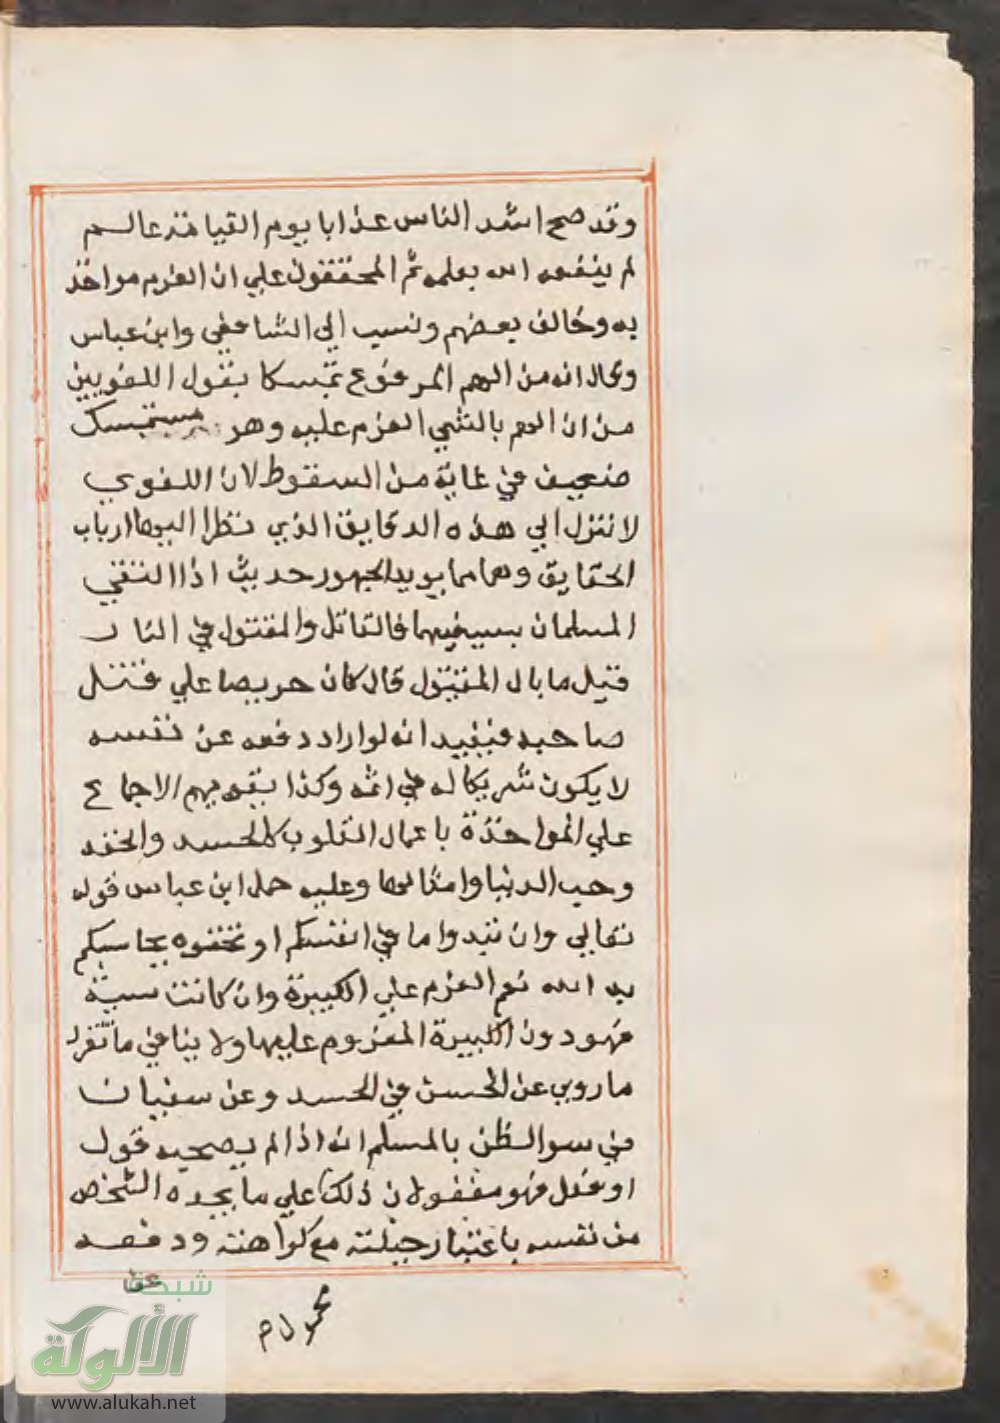 وقد صح اشد الناس عذابا يوم القيامة عالم
لم ينفعه الله بعلمه ثم المحققون علي ان العزم مواخذ
به وخالف بعضهم ونسب الي الشافعي وابن عباس
وقال انه من الهم المرفوع تمسكا بقول اللغويين
من ان الهم بالشي العزم عليه وهو مستمسك
ضعيف في غاية من السقوط لان اللغوي
لا تنزل الي هذه الدقايق الذي نظرا اليها ارباب
الحقايق ومما يويد الجمهور حديث اذا التقي
المسلمان بسيفيهما فالقاتل والمقتول في النار
قيل ما بال المقتول قال كان حريصا علي قتل
صاحبه فيفيد انه لو اراد دفعه عن نفسه
لا يكون شريكا له في اثمه وكذا يقويهم الاجماع
علي المواخذة باعمال القلوب كالحسد والحقد
وحب الدنيا وامثالها وعليه حمل ابن عباس قوله
تعالي وان تبدوا ما في انفسكم او تخفوه يحاسبكم
به الله نعم العزم علي الكبيرة وان كانت سيئة
فهو دون الكبيرة المعزوم عليها ولا ينافي ما تقرر
ما روي عن الحسن في الحسد وعن سفيان
في سو الظن بالمسلم انه اذا لم يصحبه قول
او فعل فهو معفو لان ذلك علي ما يجده الشخص
من نفسه باعتبار جبلته مع كراهته ودفعه
عن
محمول م
شبكة
الألوكة
www.alukah.net